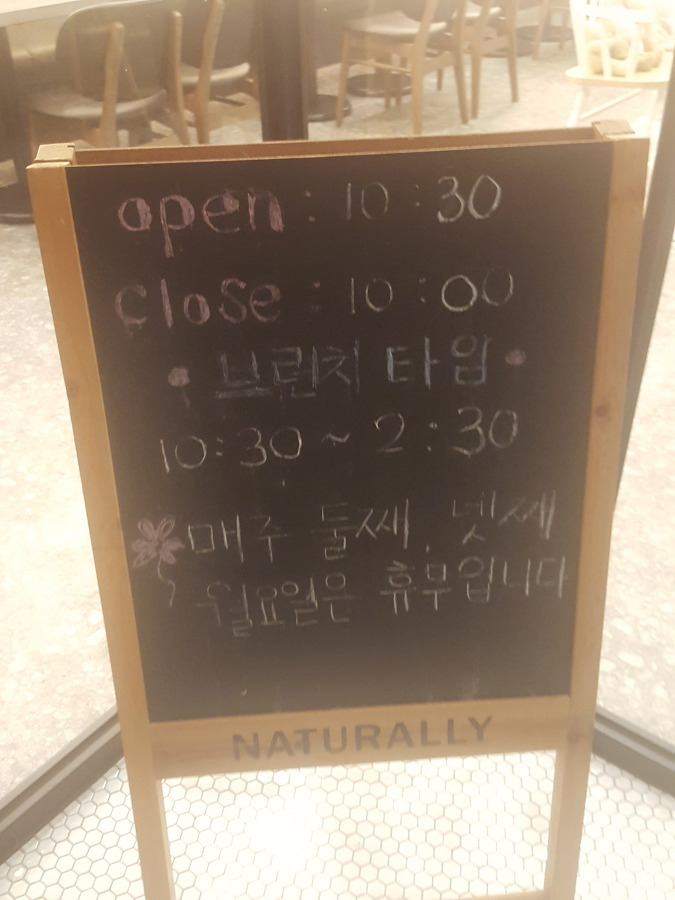 open : 10 : 30
close : 10 : 00
• 브런치 타임 •
10:30 ~ 2:30
매주 둘째, 넷째
월요일은 휴무입니다
NATURALLY